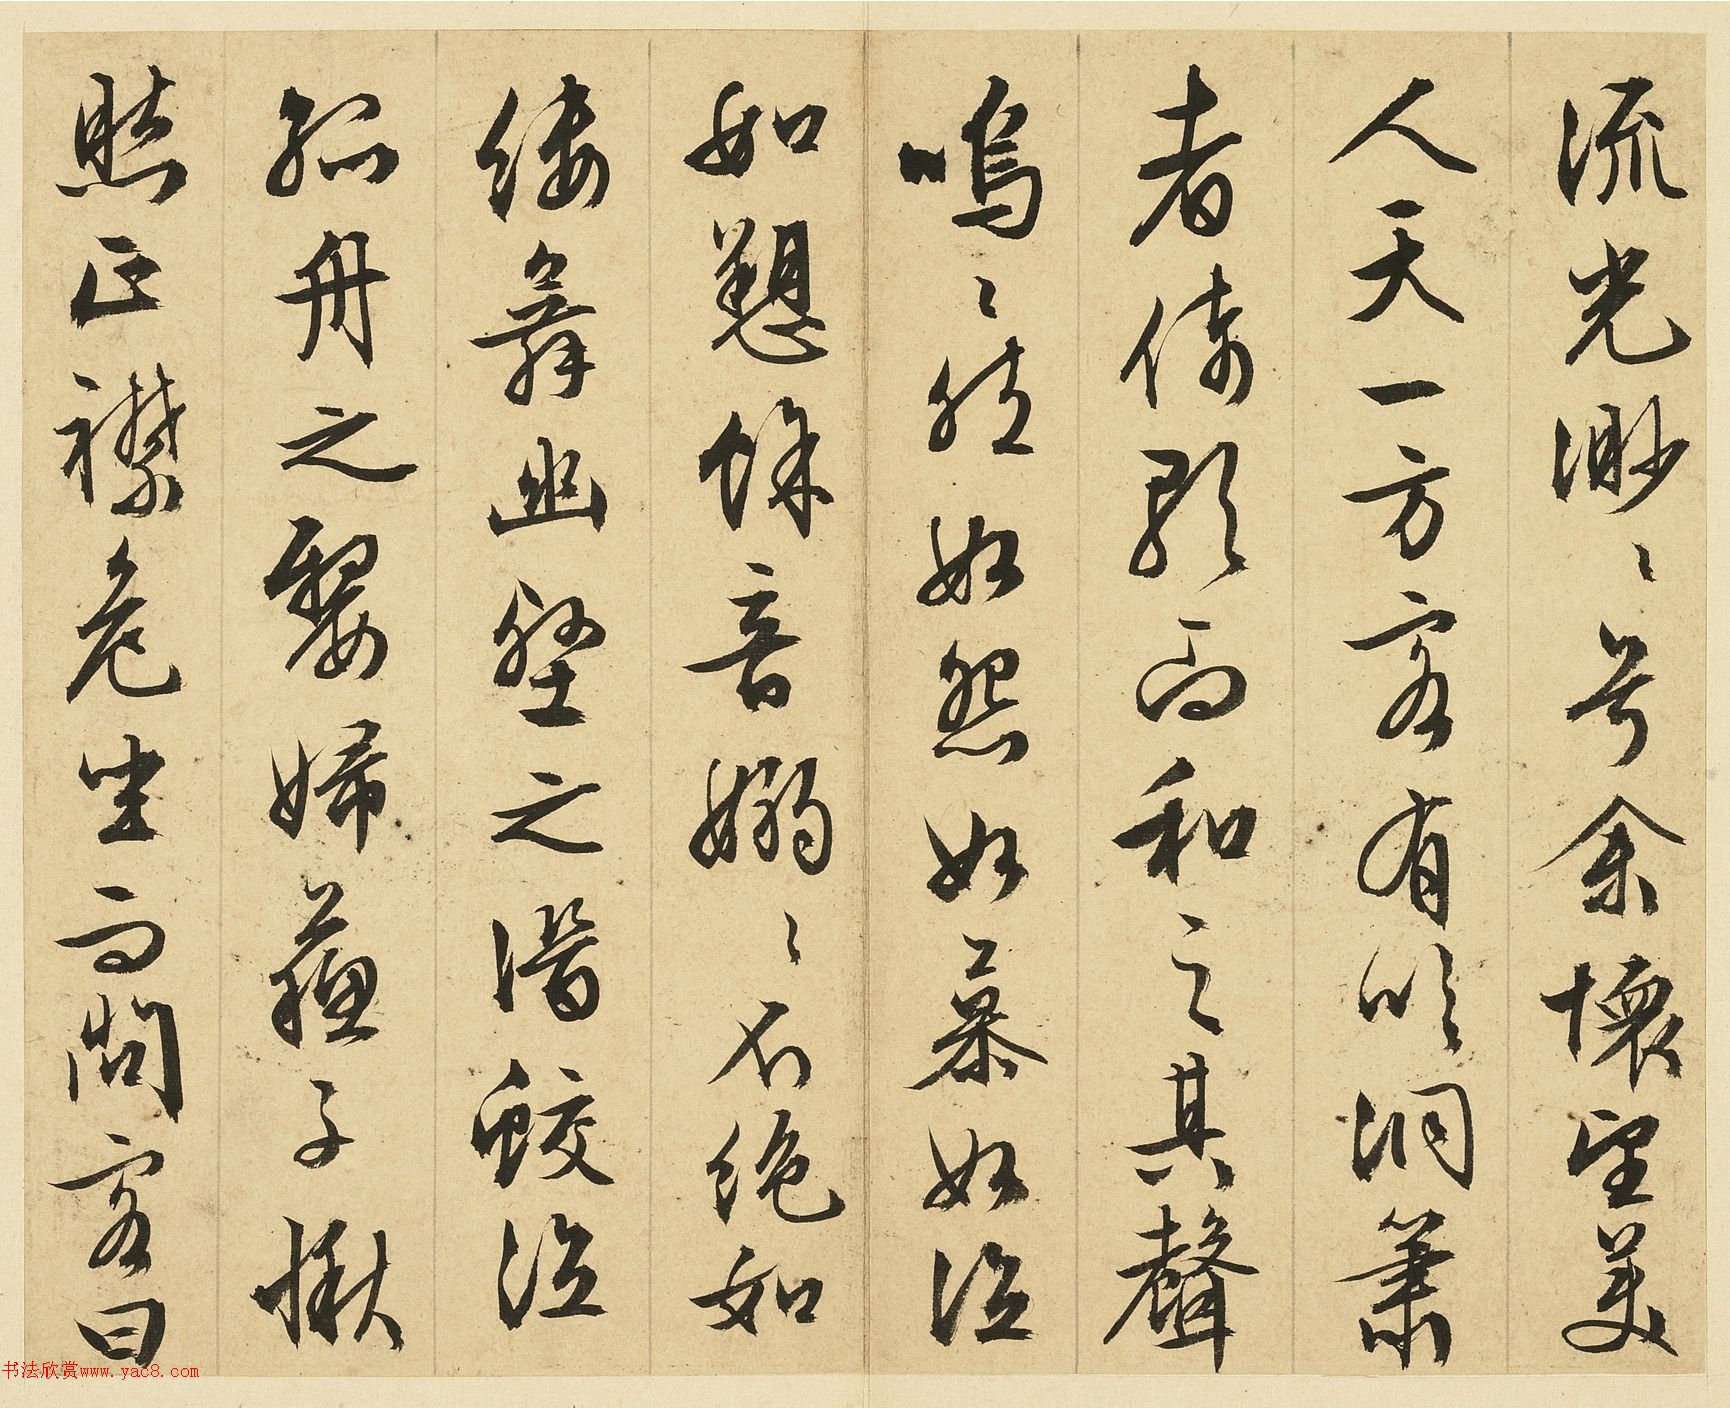 流光渺〻兮余懷望美
人天一方客有吹洞簫
者倚歌而和之其聲
嗚〻然如怨如慕如泣
如愬餘音嫋〻不絕如
縷舞幽壑之潛蛟泣
孤舟之嫠婦蘇子愀
然正襟危坐而問客曰
书法欣赏www.yac8.com